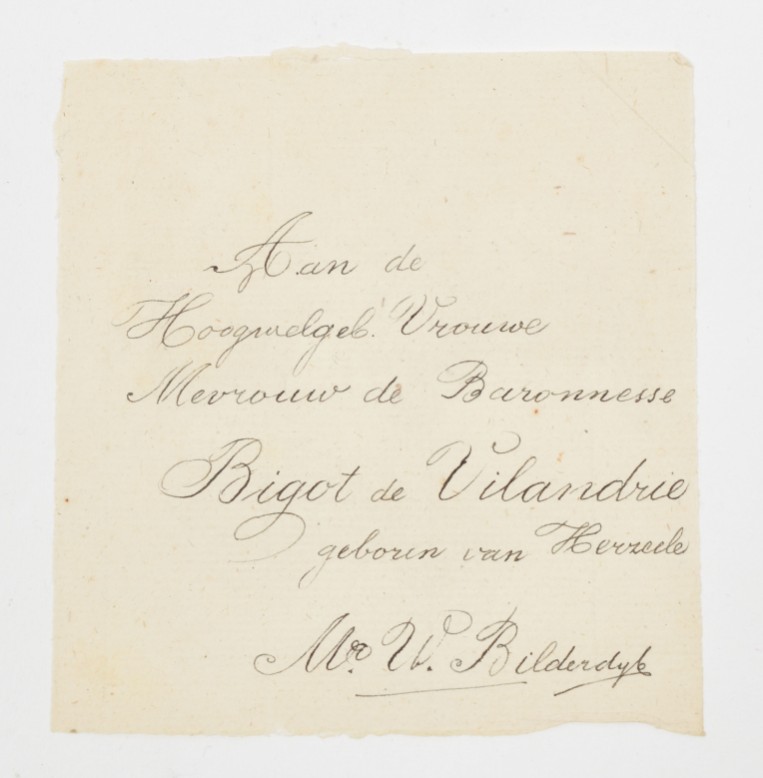 Aan de
Hoogwelgeb. Vrouwe
Mevrouw de Baronnesse
Bigot de Vilandrie
geboren van Herzeele
Mr. W. Bilderdyk